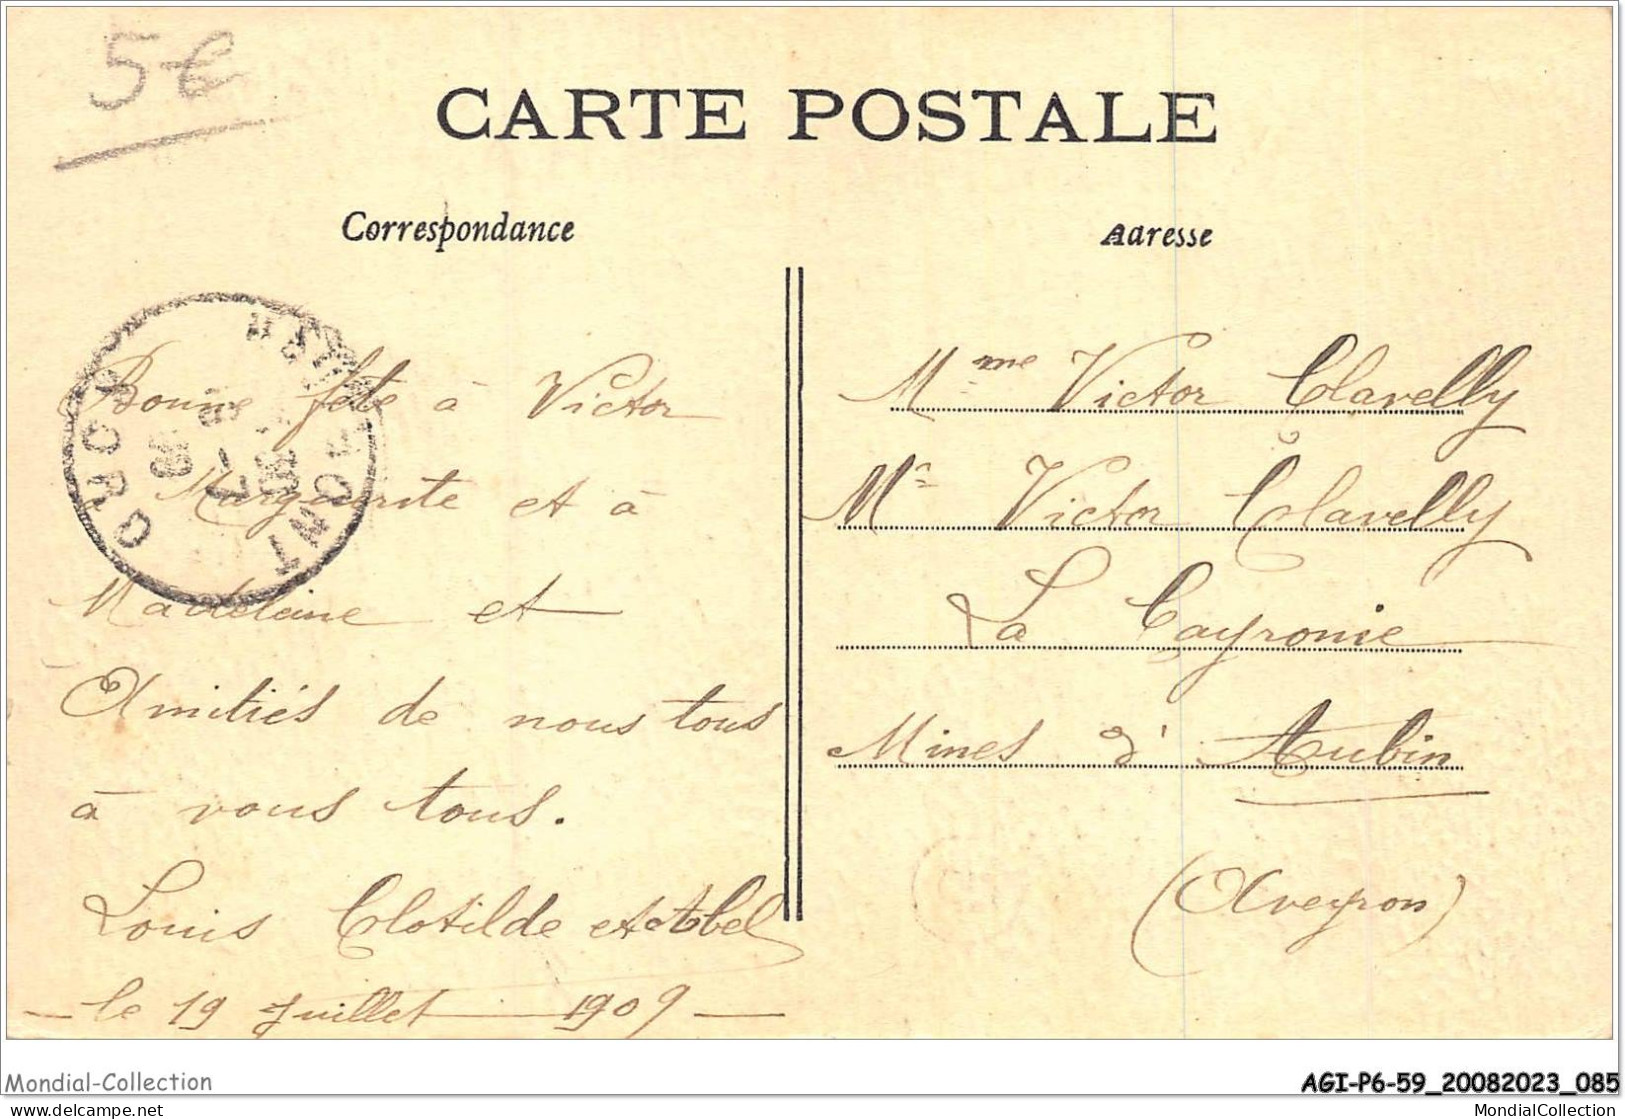 5€
CARTE POSTALE
Correspondance
Adresse
Bonne fête à Victor
Marguerite et à
Madeleine et
Amitiés de nous tous
à vous tous.
Louis Clotilde et Abel
le 19 Juillet 1909
Mme Victor Clavelly
Mr Victor Clavelly
La Cayronie
Mines d'Aubin
(Aveyron)
Mondial-Collection
AGI-P6-59_20082023_085
www.delcampe.net
MondialCollection